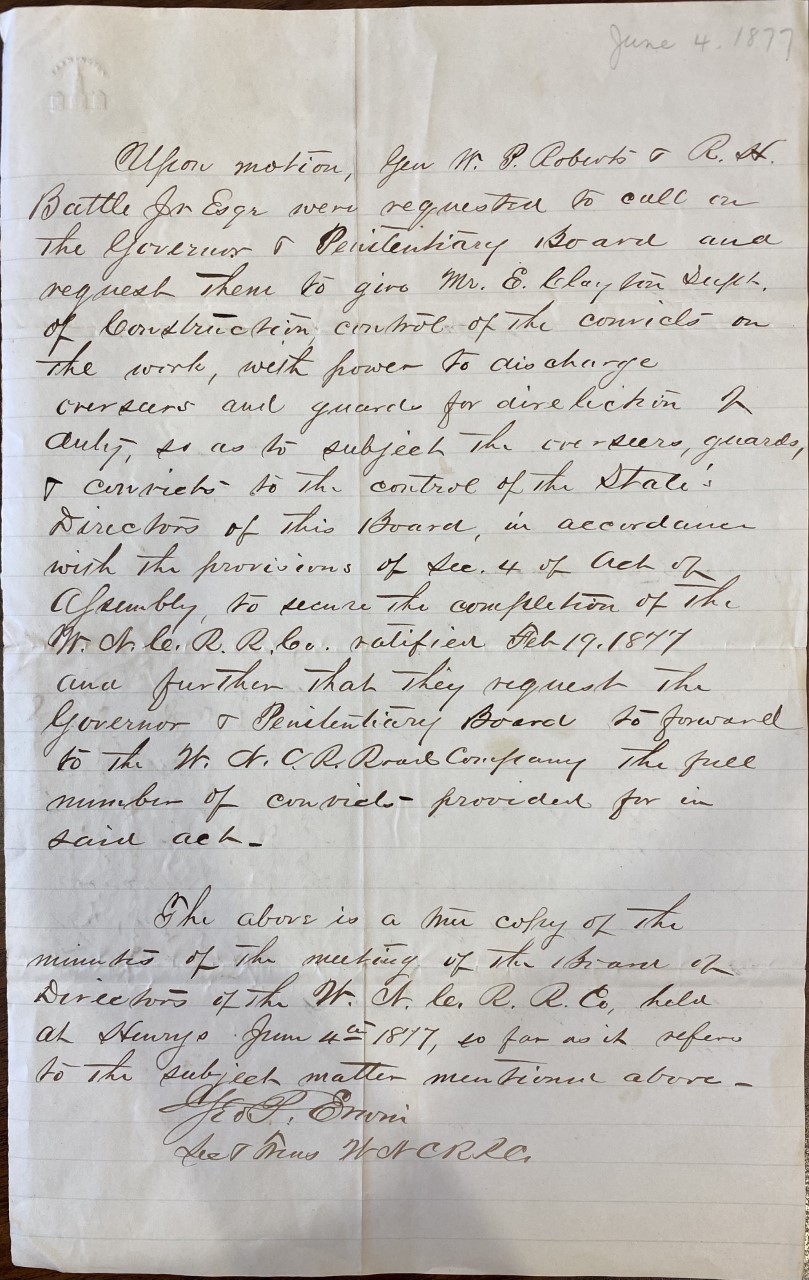 June 4. 1877
Upon motion, Gen W. P. Roberts & R. H.
Battle Jr Esqr were requested to call on
the Governor & Penitentiary Board and
request them to give Mr. E. Clayton Supt.
of Construction, control of the convicts on
the work, with power to discharge
overseers and guards for direliction of
duty, so as to subject the overseers, guards,
& convicts to the control of the State's
Directors of this Board, in accordance
with the provisions of Sec. 4 of Act of
Assembly, to secure the completion of the
W. N. C. R. R. Co. ratified Feb 19. 1877
and further that they request the
Governor & Penitentiary Board to forward
to the W. N. C. R. Road Company the full
number of convicts provided for in
said act -
The above is a true copy of the
minutes of the meeting of the Board of
Directors of the W. N. C. R. R. Co, held
at Henrys June 4th 1877, so far as it refers
to the subject matter mentioned above -
Geo P. Erwin
Sec & Treas W N C R R Co